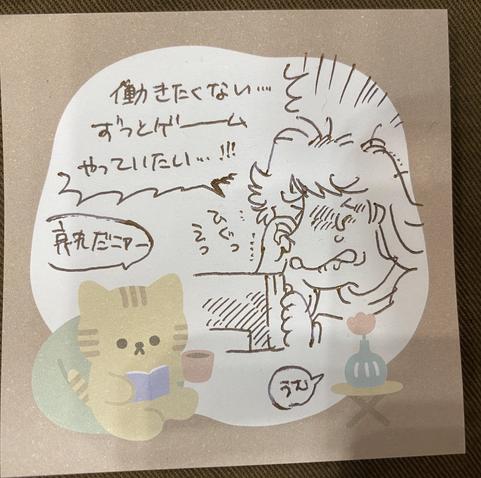 働きたくない…
ずっとゲーム
やっていたい…!!!
ひぐっ
えっ
哀れだニャー
うむ